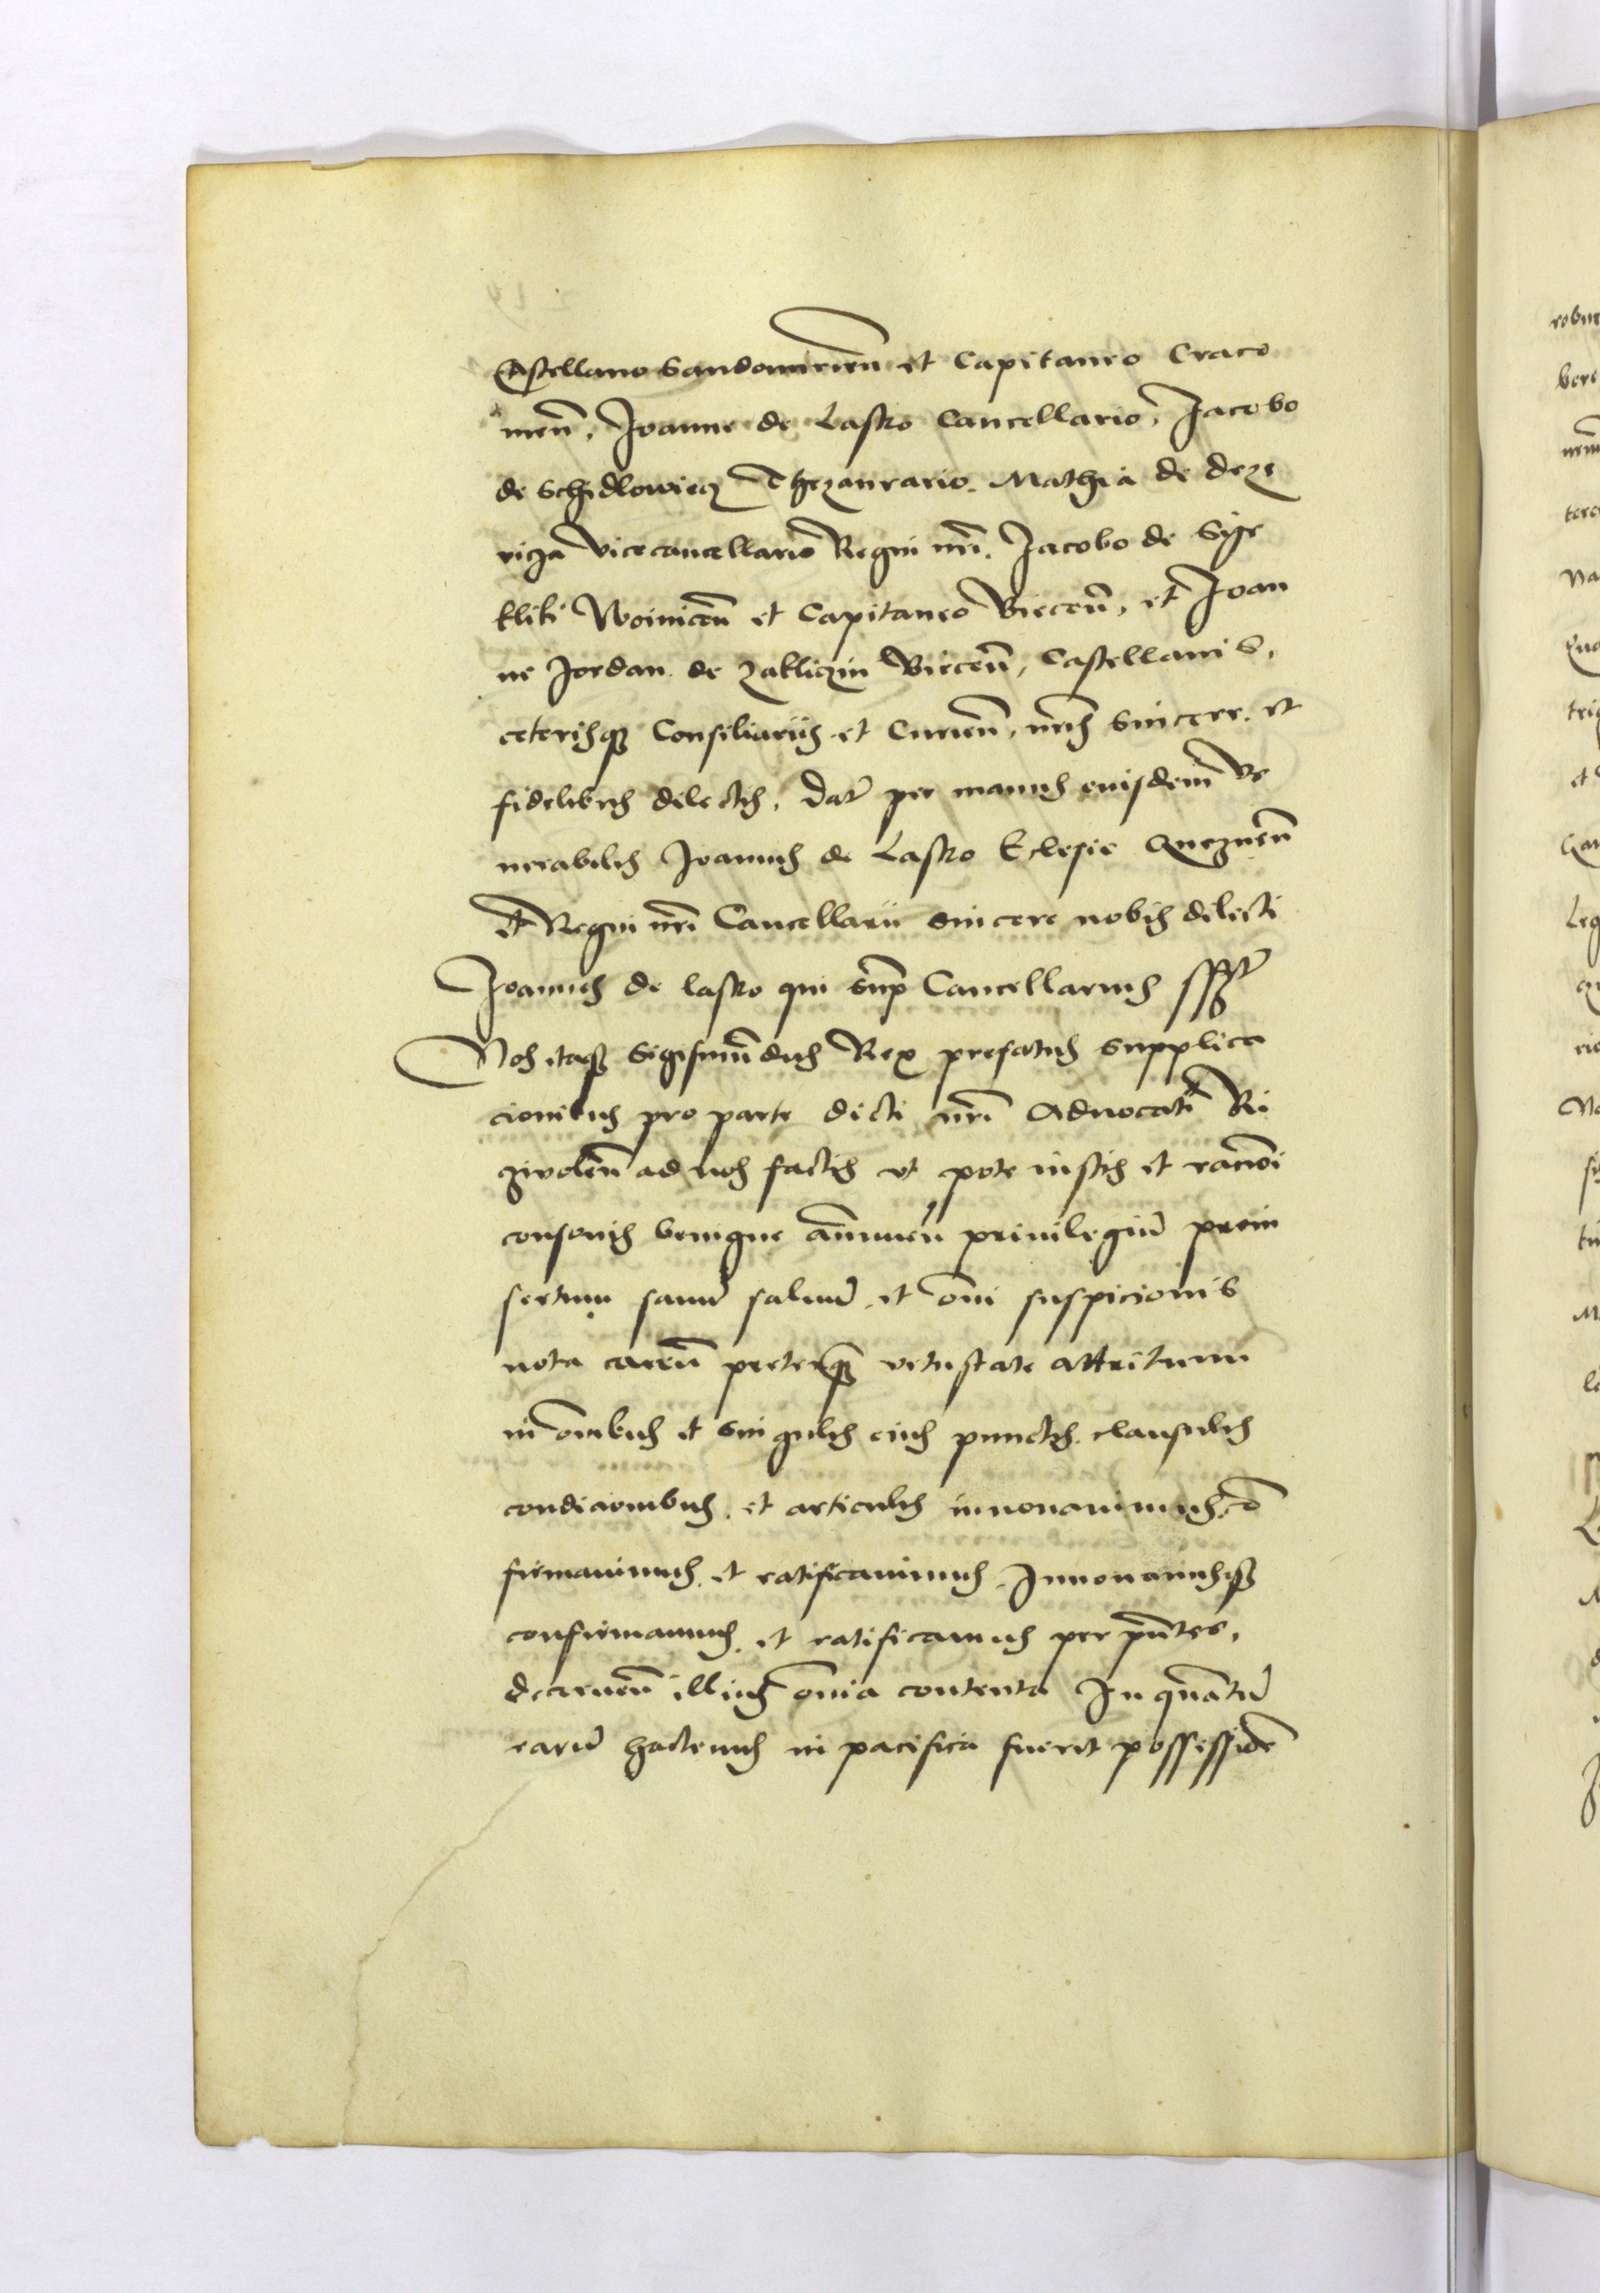 Castellano Sandomirien̄ et Capitaneo Craco
uien̄, Joanne de Lasko Cancellario, Jacobo
de Schidlowiecz Thezaurario, Mathia de Drze
vicza vicecancellario Regni nr̄i, Jacobo de Sije
kliki Woinicen̄ et Capitaneo Biecen̄, et Joan
ne Jordan de Zakliczin Biecen̄, Castellanis,
ceterisq; Consiliariis et Curien̄, nr̄is sincere et
fidelibus dilectis, Dat̄ per manus eiusdem Ve
nerabilis Joannis de Lasko Eclesie Gneznen̄
et Regni nr̄i Cancellarii sincere nobis dilecti
Joannes de lasko qui sup̄ Cancellarius sspt̄
Nos itaq; Sigismūdus Rex prefatus supplica
cionibus pro parte dicti nr̄i Aduocati Ri
ziuolien̄ ad nos factis vt pote iustis et rac̄ioni
consonis benigne ānuen̄ priuilegiū prein
sertum sanū saluū et om̄i suspicionis
nota caren̄ preterq; vetustate attritum
in om̄ibus et singulis eius punctis clausulis
condicionibus et articulis innouauimus cō
firmauimus et ratificauimus Innouamusq;
confirmamus et ratificamus per pn̄tes,
decernen̄ illius om̄ia contenta In quātū
earū hactenus in pacifica fuerit possessiōe